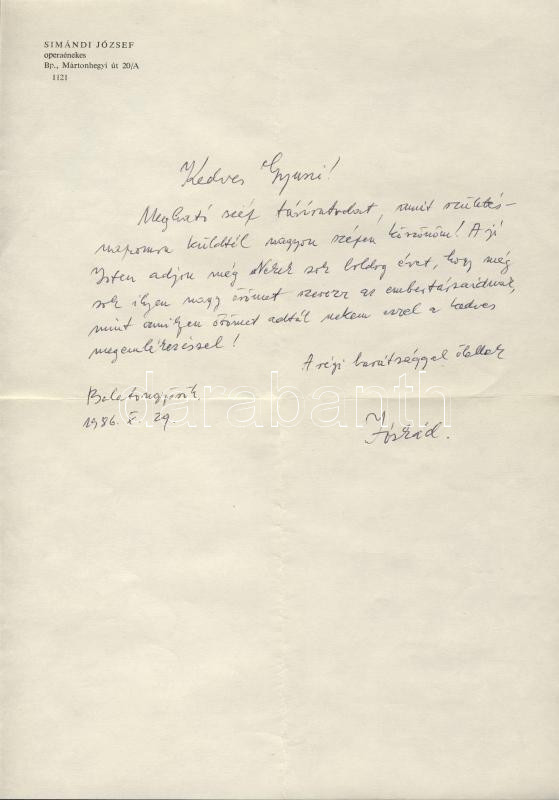 SIMÁNDI JÓZSEF
operaénekes
Bp., Mártonhegyi út 20/A
1121
Kedves Gyuszi!
Megható szép táviratodat, amit születés-
napomra küldtél nagyon szépen köszönöm! A jó
Isten adjon még Neked sok boldog évet, hogy még
sok ilyen nagy örömet szerezz az embertársaidnak,
mint amilyen örömet adtál nekem ezzel a kedves
megemlékezéssel!
A régi barátsággal ölellek
Balatongyörök,
1986. X. 29.
Jóskád.
darabanth